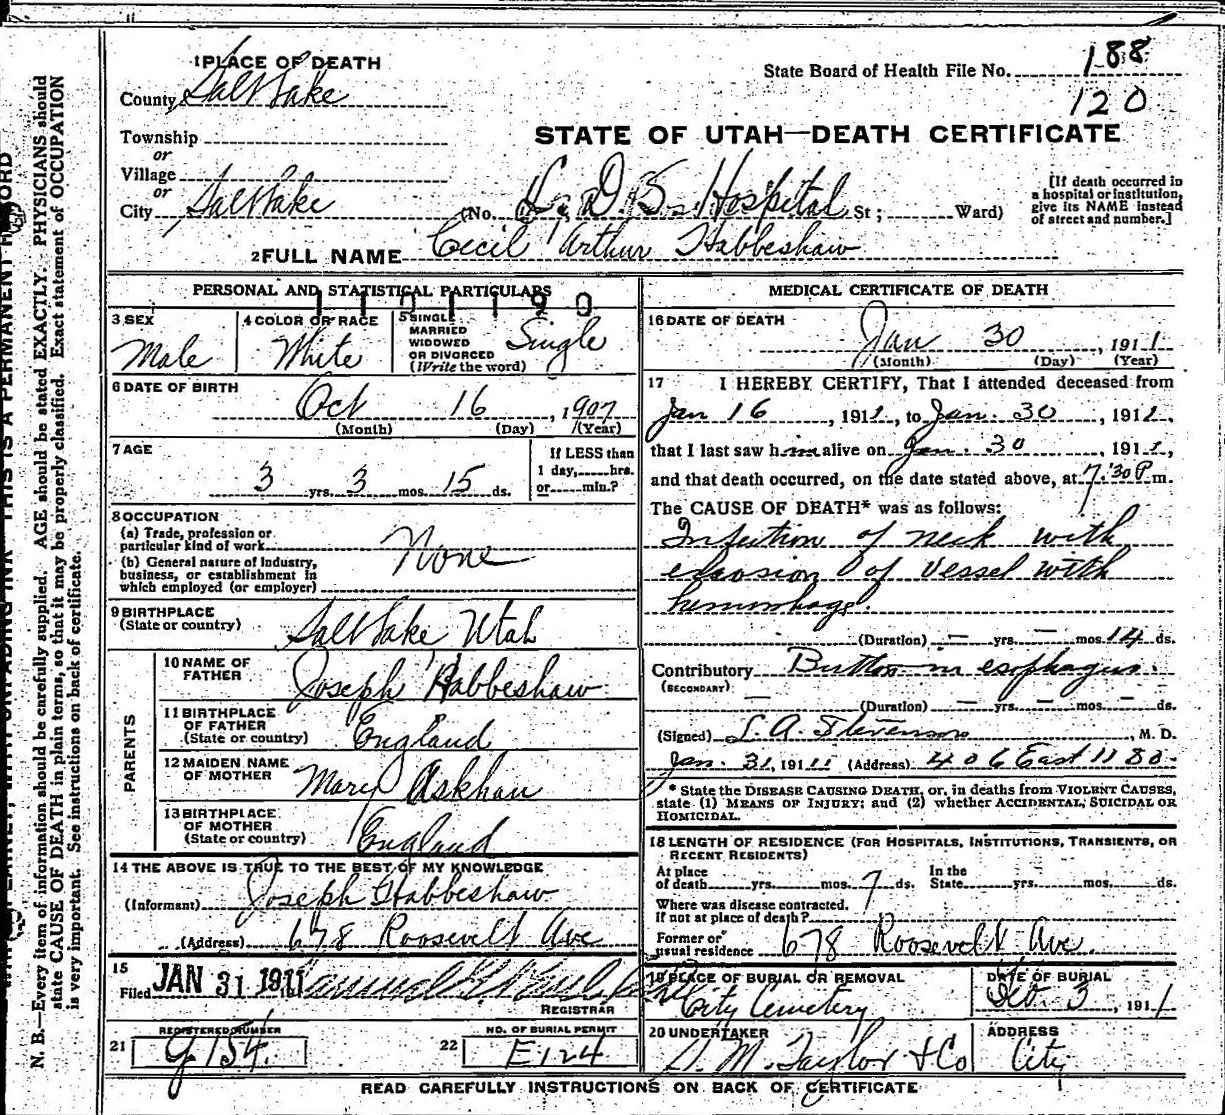 1 PLACE OF DEATH
State Board of Health File No. 188
120
County Salt Lake
STATE OF UTAH—DEATH CERTIFICATE
Township
or
Village
or
City Salt Lake
(No. L. D. S. Hospital St; Ward)
[If death occurred in a hospital or institution, give its NAME instead of street and number.]
2 FULL NAME Cecil Arthur Habbeshaw
PERSONAL AND STATISTICAL PARTICULARS
1101190
3 SEX
Male
4 COLOR OR RACE
White
5 SINGLE
MARRIED
WIDOWED
OR DIVORCED
(Write the word)
Single
6 DATE OF BIRTH
Oct 16, 1907
(Month) (Day) (Year)
7 AGE
3 yrs. 3 mos. 15 ds.
If LESS than
1 day, hrs.
or min.?
8 OCCUPATION
(a) Trade, profession or
particular kind of work
None
(b) General nature of industry,
business, or establishment in
which employed (or employer)
9 BIRTHPLACE
(State or country)
Salt Lake Utah
PARENTS
10 NAME OF
FATHER
Joseph Habbeshaw
11 BIRTHPLACE
OF FATHER
(State or country)
England
12 MAIDEN NAME
OF MOTHER
Mary Askhan
13 BIRTHPLACE
OF MOTHER
(State or country)
England
14 THE ABOVE IS TRUE TO THE BEST OF MY KNOWLEDGE
(Informant) Joseph Habbeshaw
(Address) 678 Roosevelt Ave
15
Filed JAN 31 1911
REGISTRAR
21 REGISTERED NUMBER
G 154
22 NO. OF BURIAL PERMIT
E124
MEDICAL CERTIFICATE OF DEATH
16 DATE OF DEATH
Jan 30, 1911
(Month) (Day) (Year)
17 I HEREBY CERTIFY, That I attended deceased from
Jan 16, 1911, to Jan. 30, 1911,
that I last saw him alive on Jan. 30, 1911,
and that death occurred, on the date stated above, at 7:30 P m.
The CAUSE OF DEATH* was as follows:
Infection of neck with
erosion of vessel with
hemorrhage.
(Duration) — yrs. — mos. 14 ds.
Contributory Button in esophagus.
(SECONDARY)
(Duration) — yrs. — mos. — ds.
(Signed) L. A. Stevenson, M. D.
Jan. 31, 1911 (Address) 406 East 11 So.
* State the DISEASE CAUSING DEATH, or, in deaths from VIOLENT CAUSES,
state (1) MEANS OF INJURY; and (2) whether ACCIDENTAL, SUICIDAL OR
HOMICIDAL.
18 LENGTH OF RESIDENCE (FOR HOSPITALS, INSTITUTIONS, TRANSIENTS, OR
RECENT RESIDENTS)
At place
of death yrs. mos. 7 ds.
In the
State yrs. mos. ds.
Where was disease contracted,
if not at place of death?
Former or
usual residence 678 Roosevelt Ave.
19 PLACE OF BURIAL OR REMOVAL
City Cemetery
DATE OF BURIAL
Feb. 3, 1911
20 UNDERTAKER
S. M. Taylor & Co
ADDRESS
City
READ CAREFULLY INSTRUCTIONS ON BACK OF CERTIFICATE
N. B.—Every item of information should be carefully supplied. AGE should be stated EXACTLY. PHYSICIANS should
state CAUSE OF DEATH in plain terms, so that it may be properly classified. Exact statement of OCCUPATION
is very important. See instructions on back of certificate.